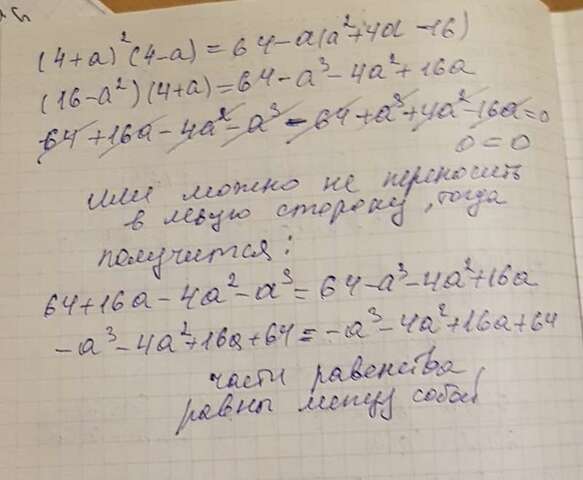 (4+a)²(4-a)=64-a(a²+4a-16)
(16-a²)(4+a)=64-a³-4a²+16a
64+16a-4a²-a³-64+a³+4a²-16a=0
0=0
или можно не переносить
в левую сторону, тогда
получится:
64+16a-4a²-a³=64-a³-4a²+16a
-a³-4a²+16a+64=-a³-4a²+16a+64
части равенства
равны между собой